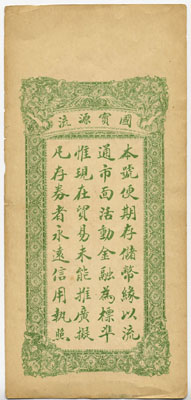 國寳源流
本號便期存儲幣緣以流
通市面活動金融為標準
惟現在貿易未能推廣擬
凡存券者永遠信用執照